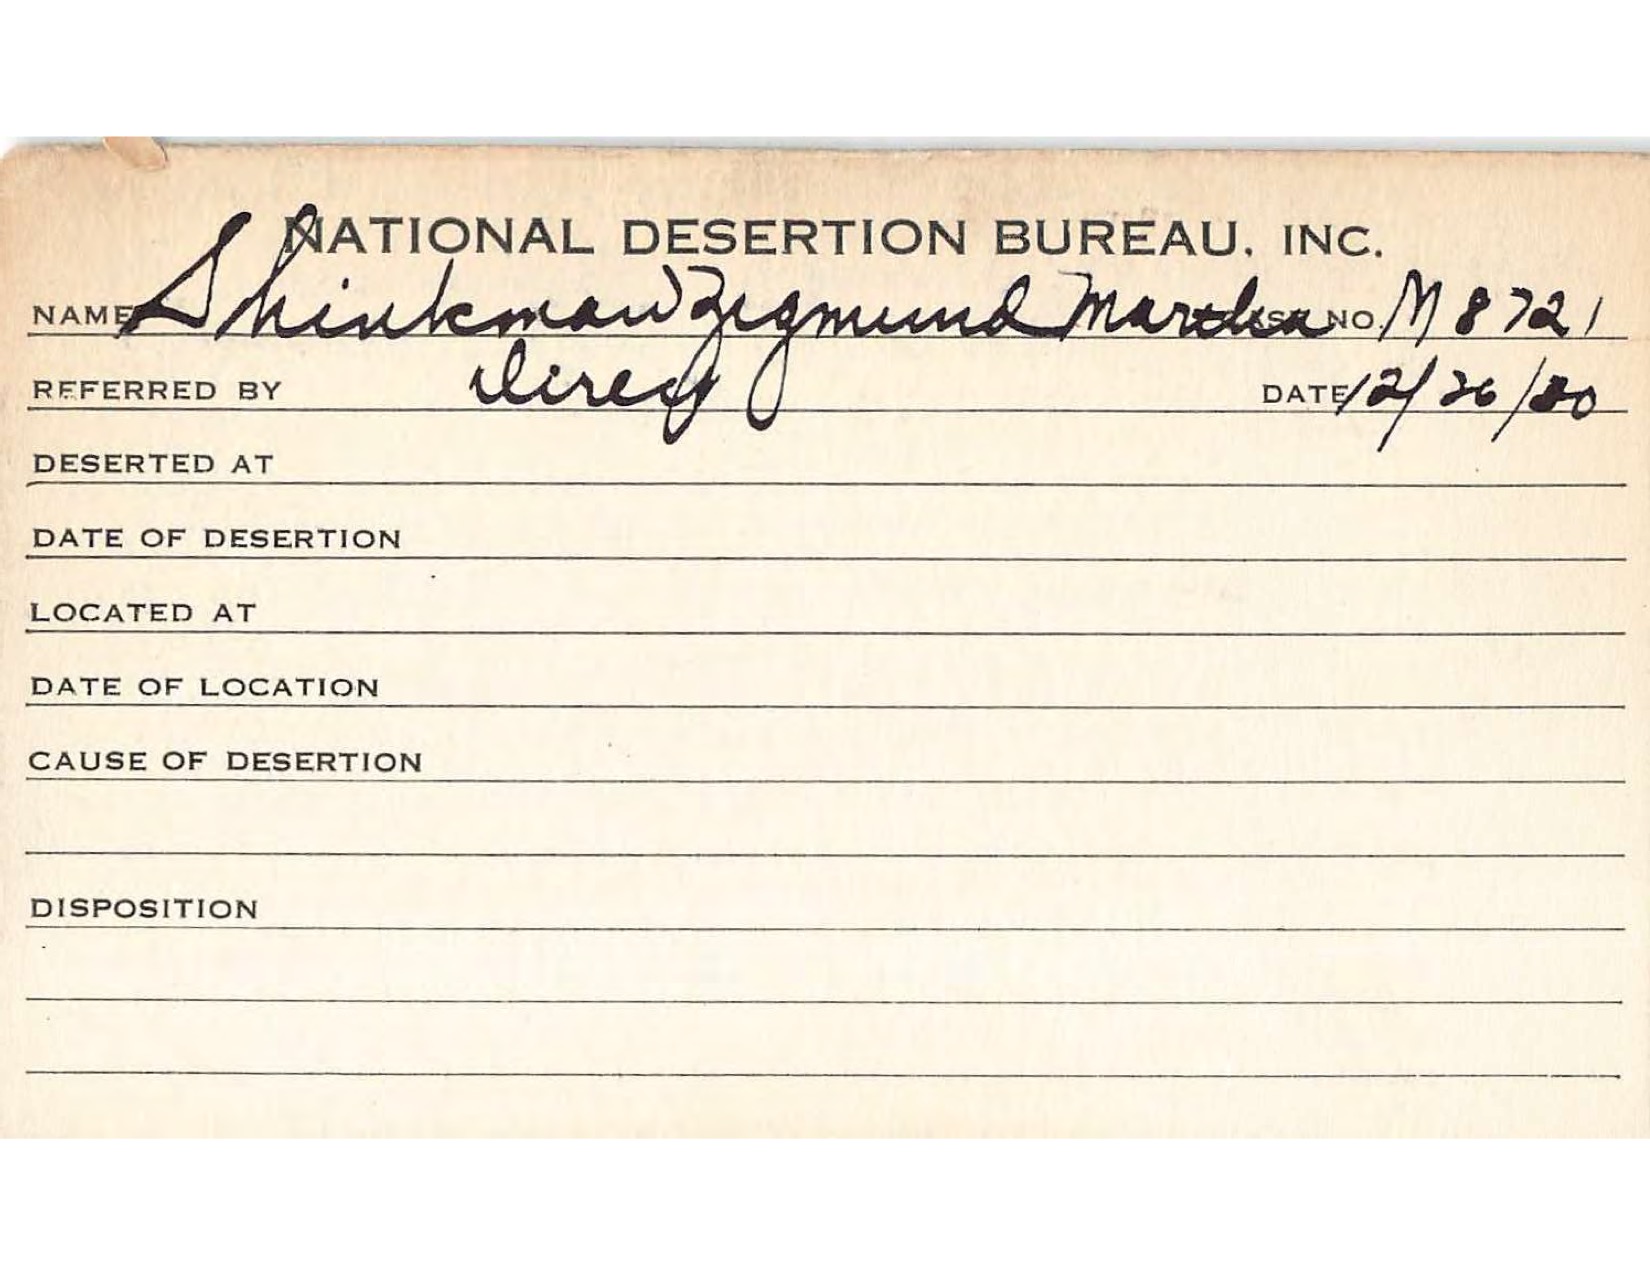 NATIONAL DESERTION BUREAU, INC.
NAME Shinkman Zigmund Martha CASE NO. M 8721
REFERRED BY Direct DATE 12/26/30
DESERTED AT
DATE OF DESERTION
LOCATED AT
DATE OF LOCATION
CAUSE OF DESERTION
DISPOSITION